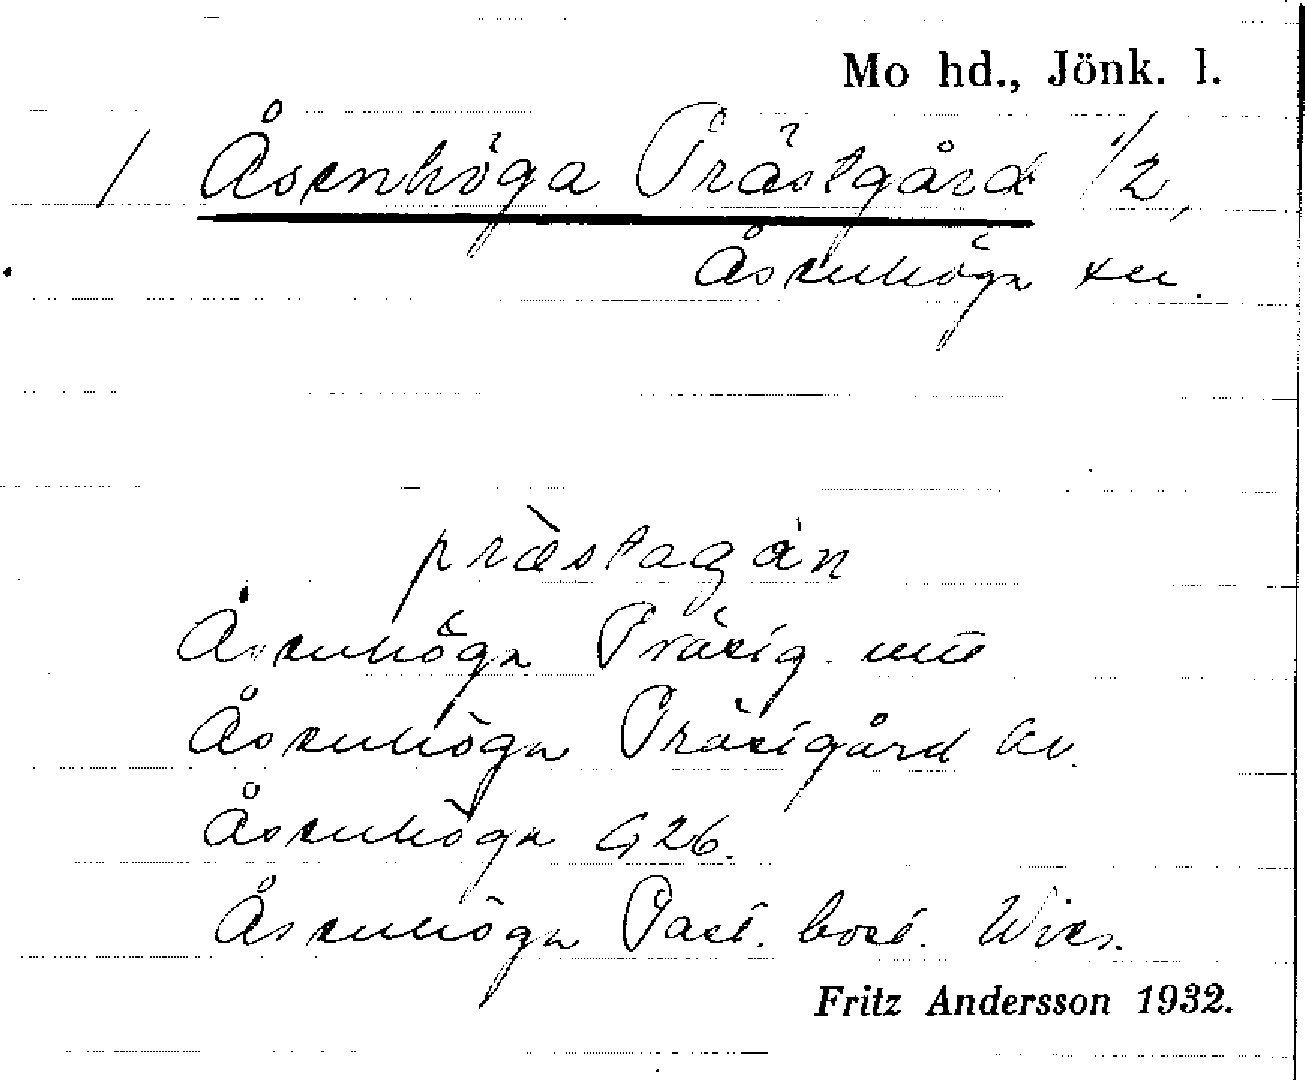 Mo hd., Jönk. l.
/ Åsenhöga Prästgård 1/2,
Åsenhöga sn.
præ̀stagán
Åsenhöga Prästg.
Åsenhöga Prästgård Av.
Åsenhöga G 26.
Åsenhöga Past. bost. Wies.
Fritz Andersson 1932.